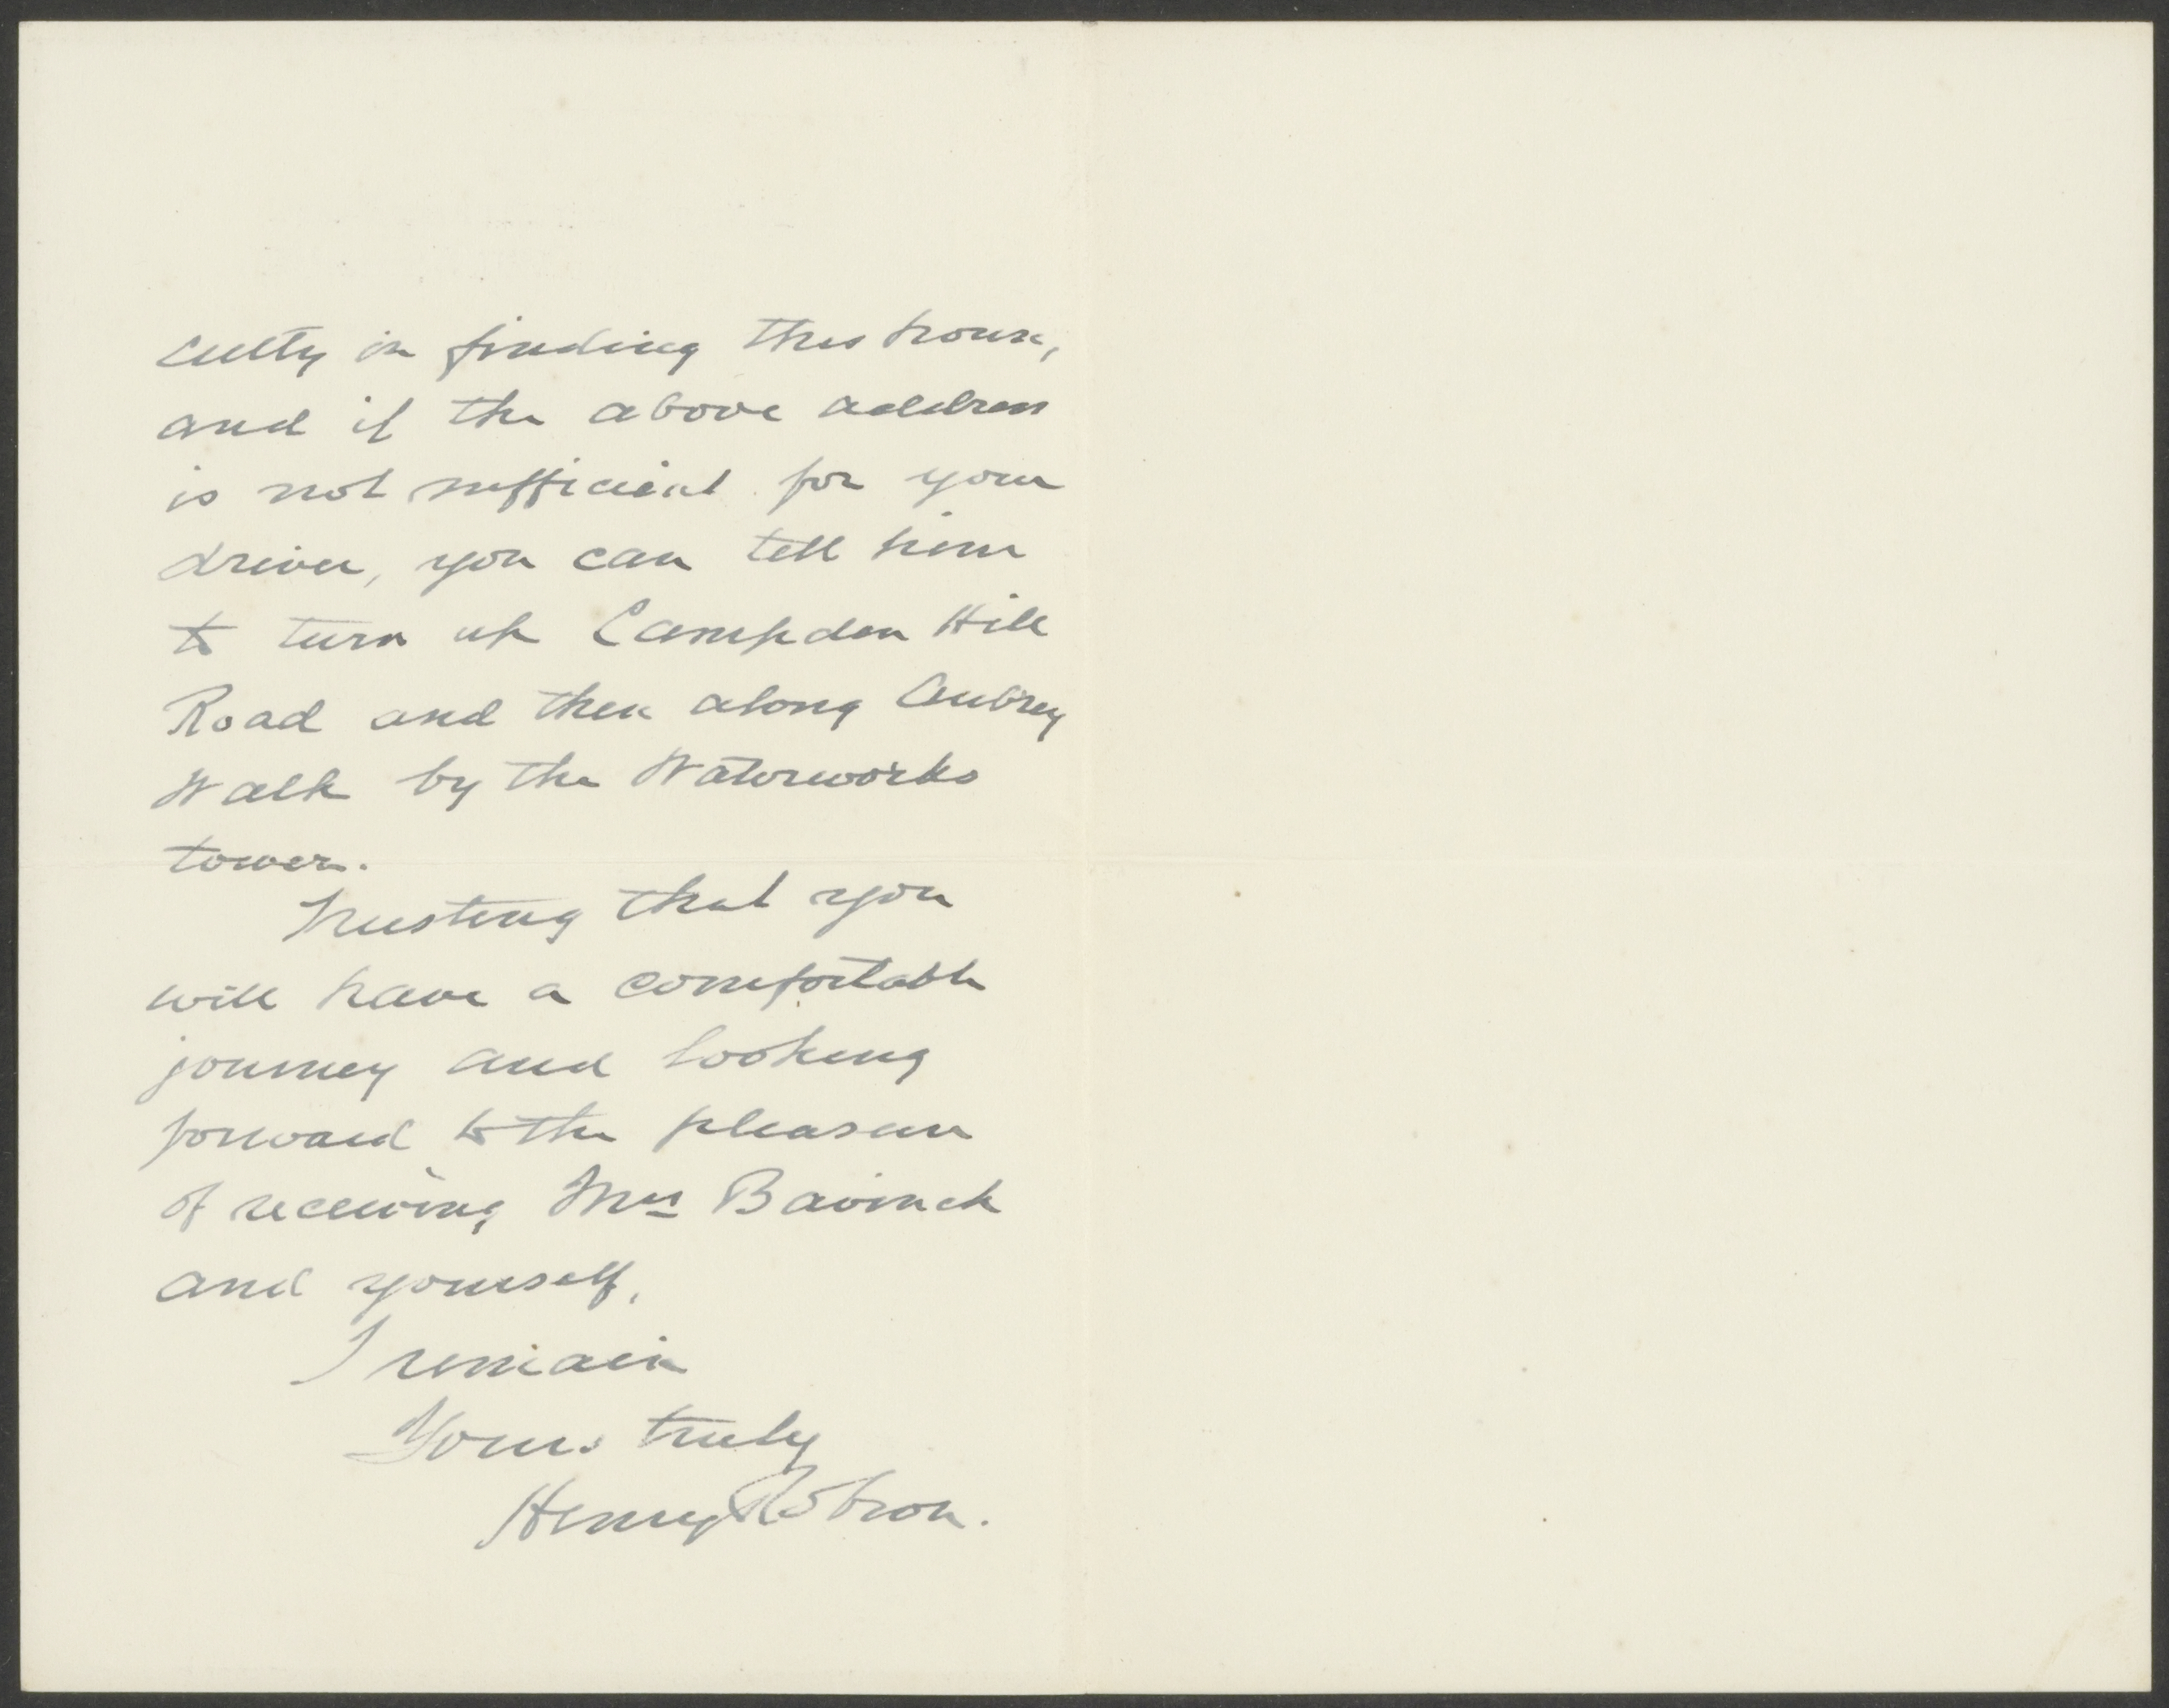 culty in finding this house,
and if the above address
is not sufficient for your
driver, you can tell him
to turn up Campden Hill
Road and then along Aubrey
Walk by the Waterworks
tower.
Trusting that you
will have a comfortable
journey and looking
forward to the pleasure
of receiving Mrs Bavinck
and yourself,
I remain
Yours truly
Henry Robson.